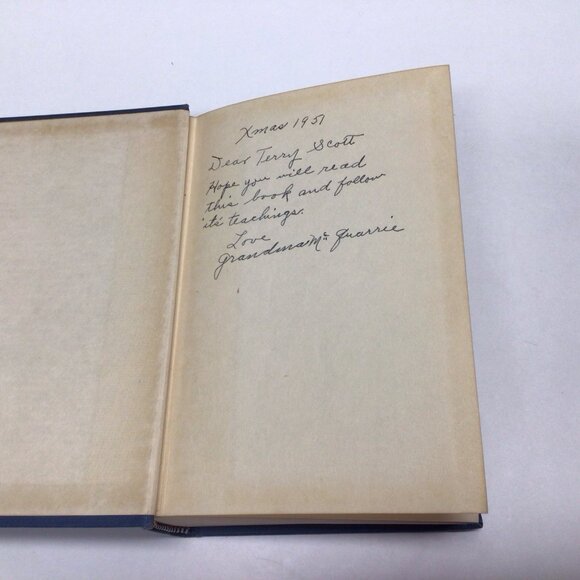 Xmas 1951
Dear Terry Scott
Hope you will read
this book and follow
it's teachings.
Love
Grandma Mc Quarrie